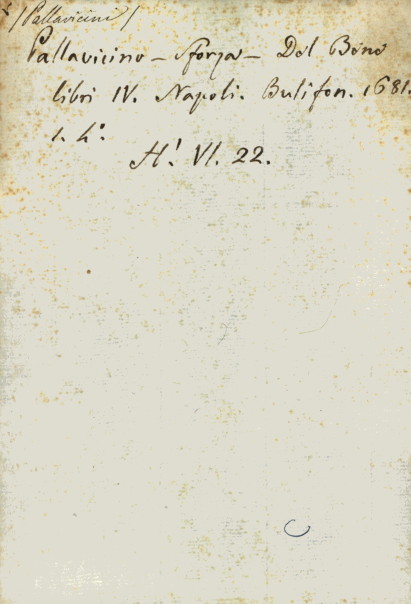 /Pallavicini/
Pallavicino – Sforza – Del Bene
libri IV. Napoli. Bulifon. 1681.
1. 4.°
H! VI. 22.